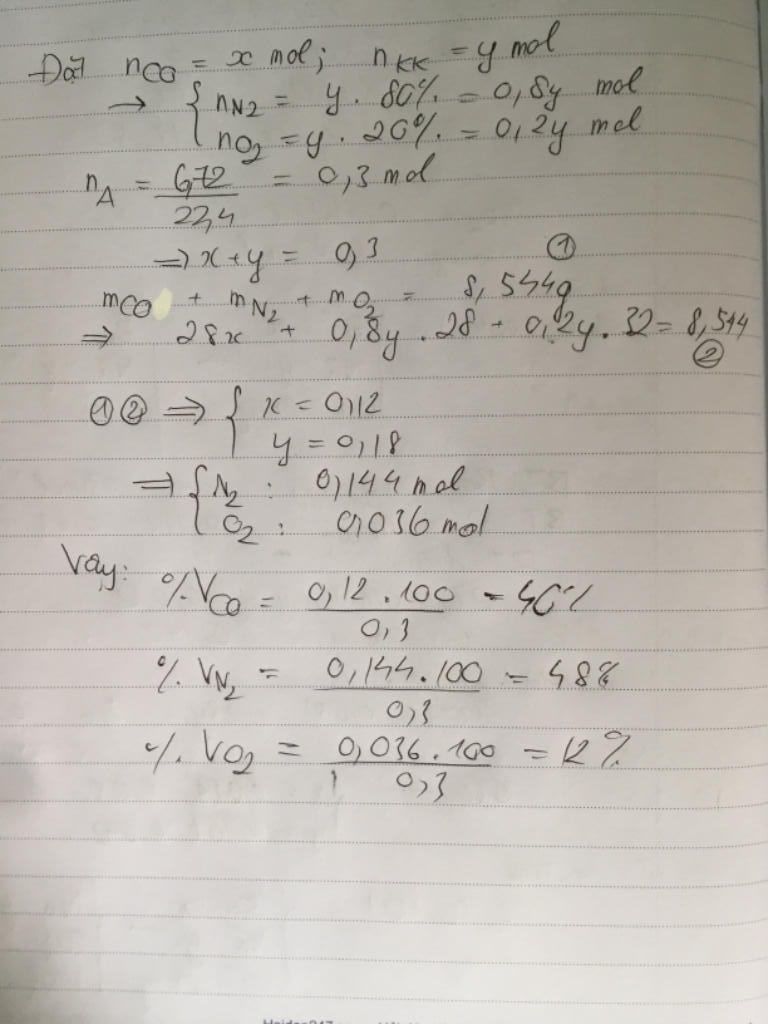 Đặt nCO = x mol; nKK = y mol
→ { nN2 = y. 80% = 0,8y mol
nO2 = y. 20% = 0,2y mol
nA = 6,72/22,4 = 0,3 mol
⇒ x+y = 0,3 ①
mCO + mN2 + mO2 = 8,544g
⇒ 28x + 0,8y.28 + 0,2y.32 = 8,544 ②
①② ⇒ { x = 0,12
y = 0,18
⇒ { N2 : 0,144 mol
O2 : 0,036 mol
Vậy: %VCO = 0,12.100/0,3 = 40%
%VN2 = 0,144.100/0,3 = 48%
%VO2 = 0,036.100/0,3 = 12%